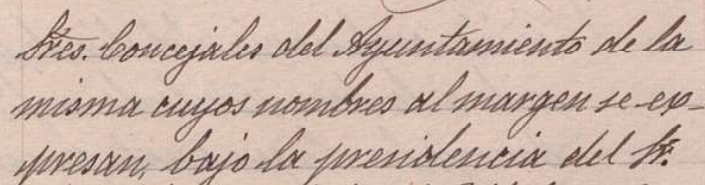 Sres. Concejales del Ayuntamiento de la
misma cuyos nombres al margen se ex-
presan, bajo la presidencia del Sr.